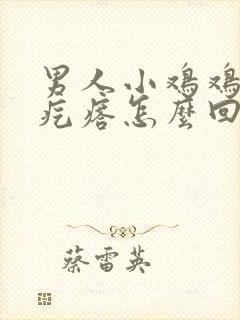 男人小鸡鸡
疙瘩怎麼回
蔡雷英